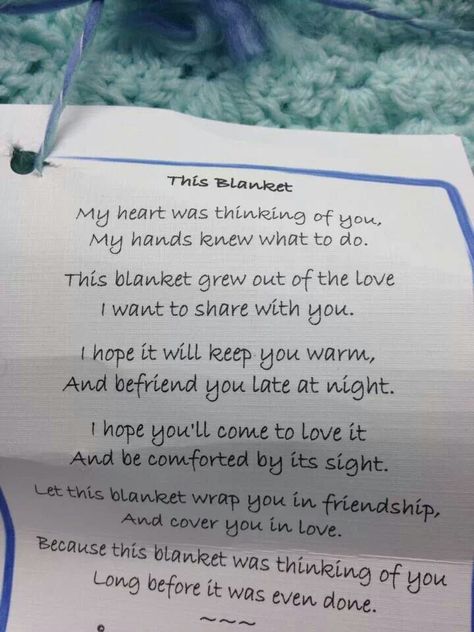 This Blanket
My heart was thinking of you,
My hands knew what to do.
This blanket grew out of the love
I want to share with you.
I hope it will keep you warm,
And befriend you late at night.
I hope you'll come to love it
And be comforted by its sight.
Let this blanket wrap you in friendship,
And cover you in love.
Because this blanket was thinking of you
Long before it was even done.
~~~